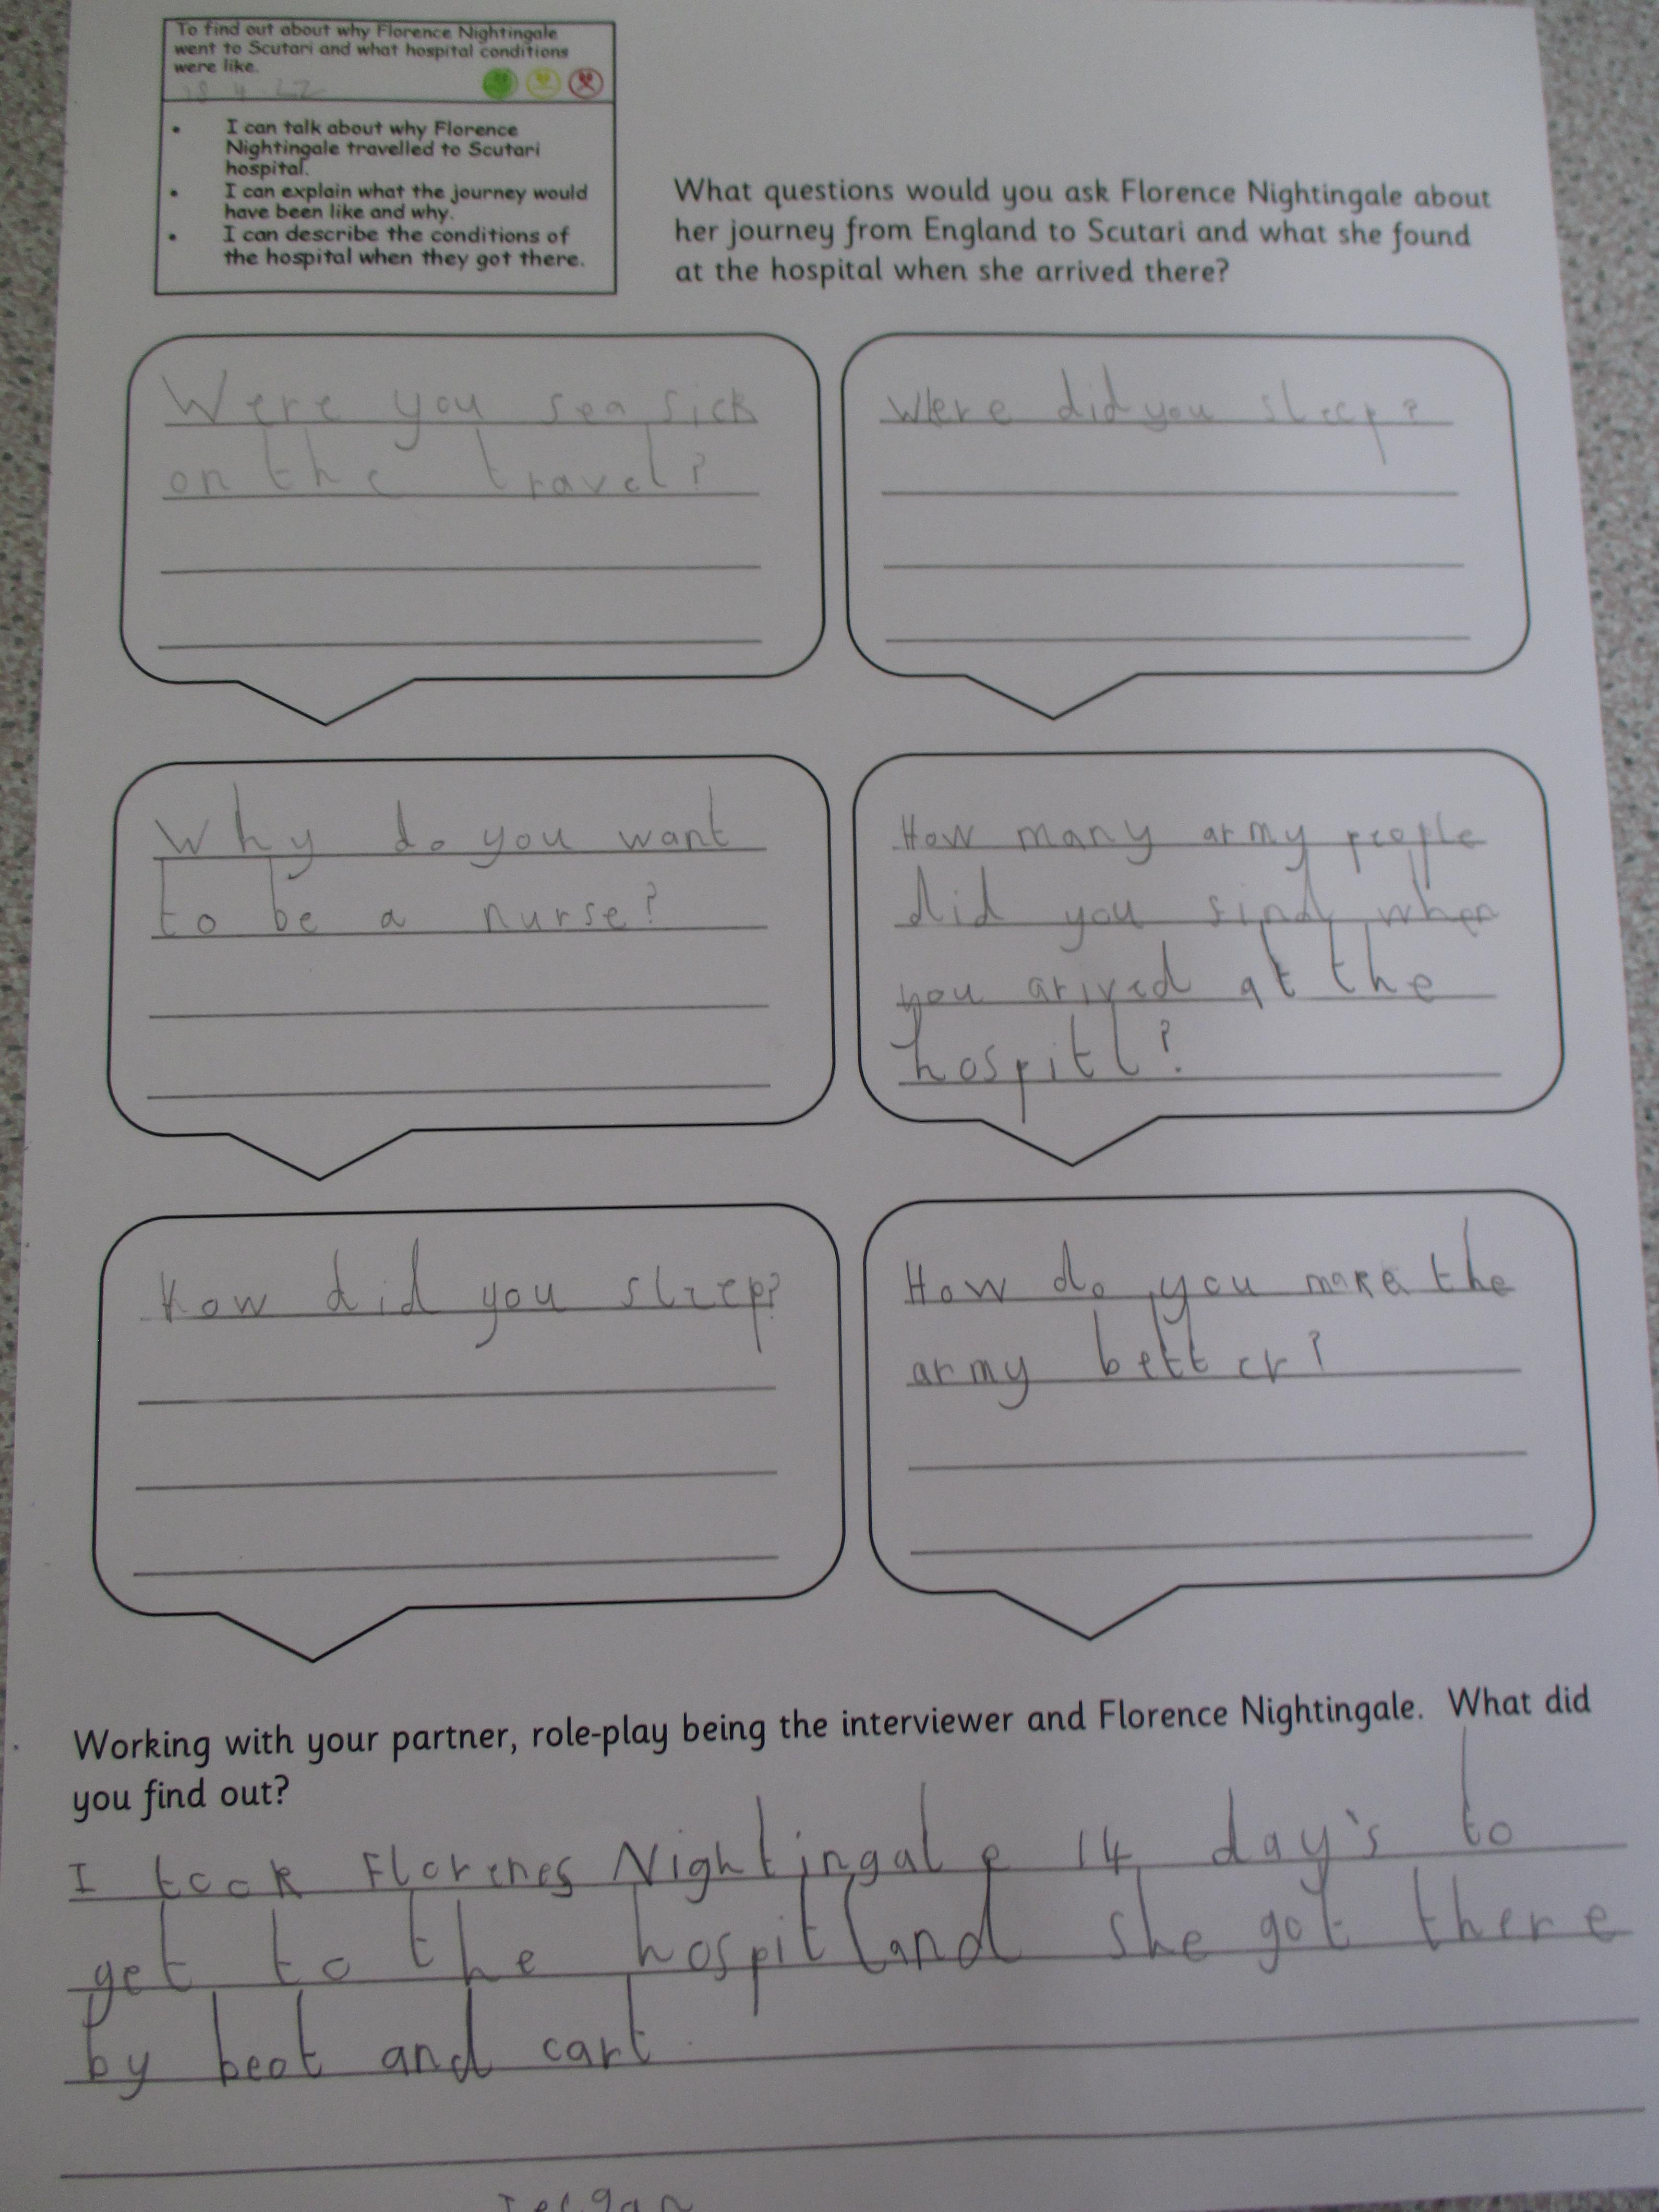 To find out about why Florence Nightingale
went to Scutari and what hospital conditions
were like.
• I can talk about why Florence
Nightingale travelled to Scutari
hospital.
• I can explain what the journey would
have been like and why.
• I can describe the conditions of
the hospital when they got there.
What questions would you ask Florence Nightingale about
her journey from England to Scutari and what she found
at the hospital when she arrived there?
Were you sea sick
on the travel?
Were did you sleep?
Why do you want
to be a nurse?
How many army people
did you find when
you arived at the
hospitl?
How did you sleep?
How do you make the
army better?
Working with your partner, role-play being the interviewer and Florence Nightingale. What did
you find out?
I took Florenes Nightingale 14 day's to
get to the hospitl and she got there
by beot and cart.